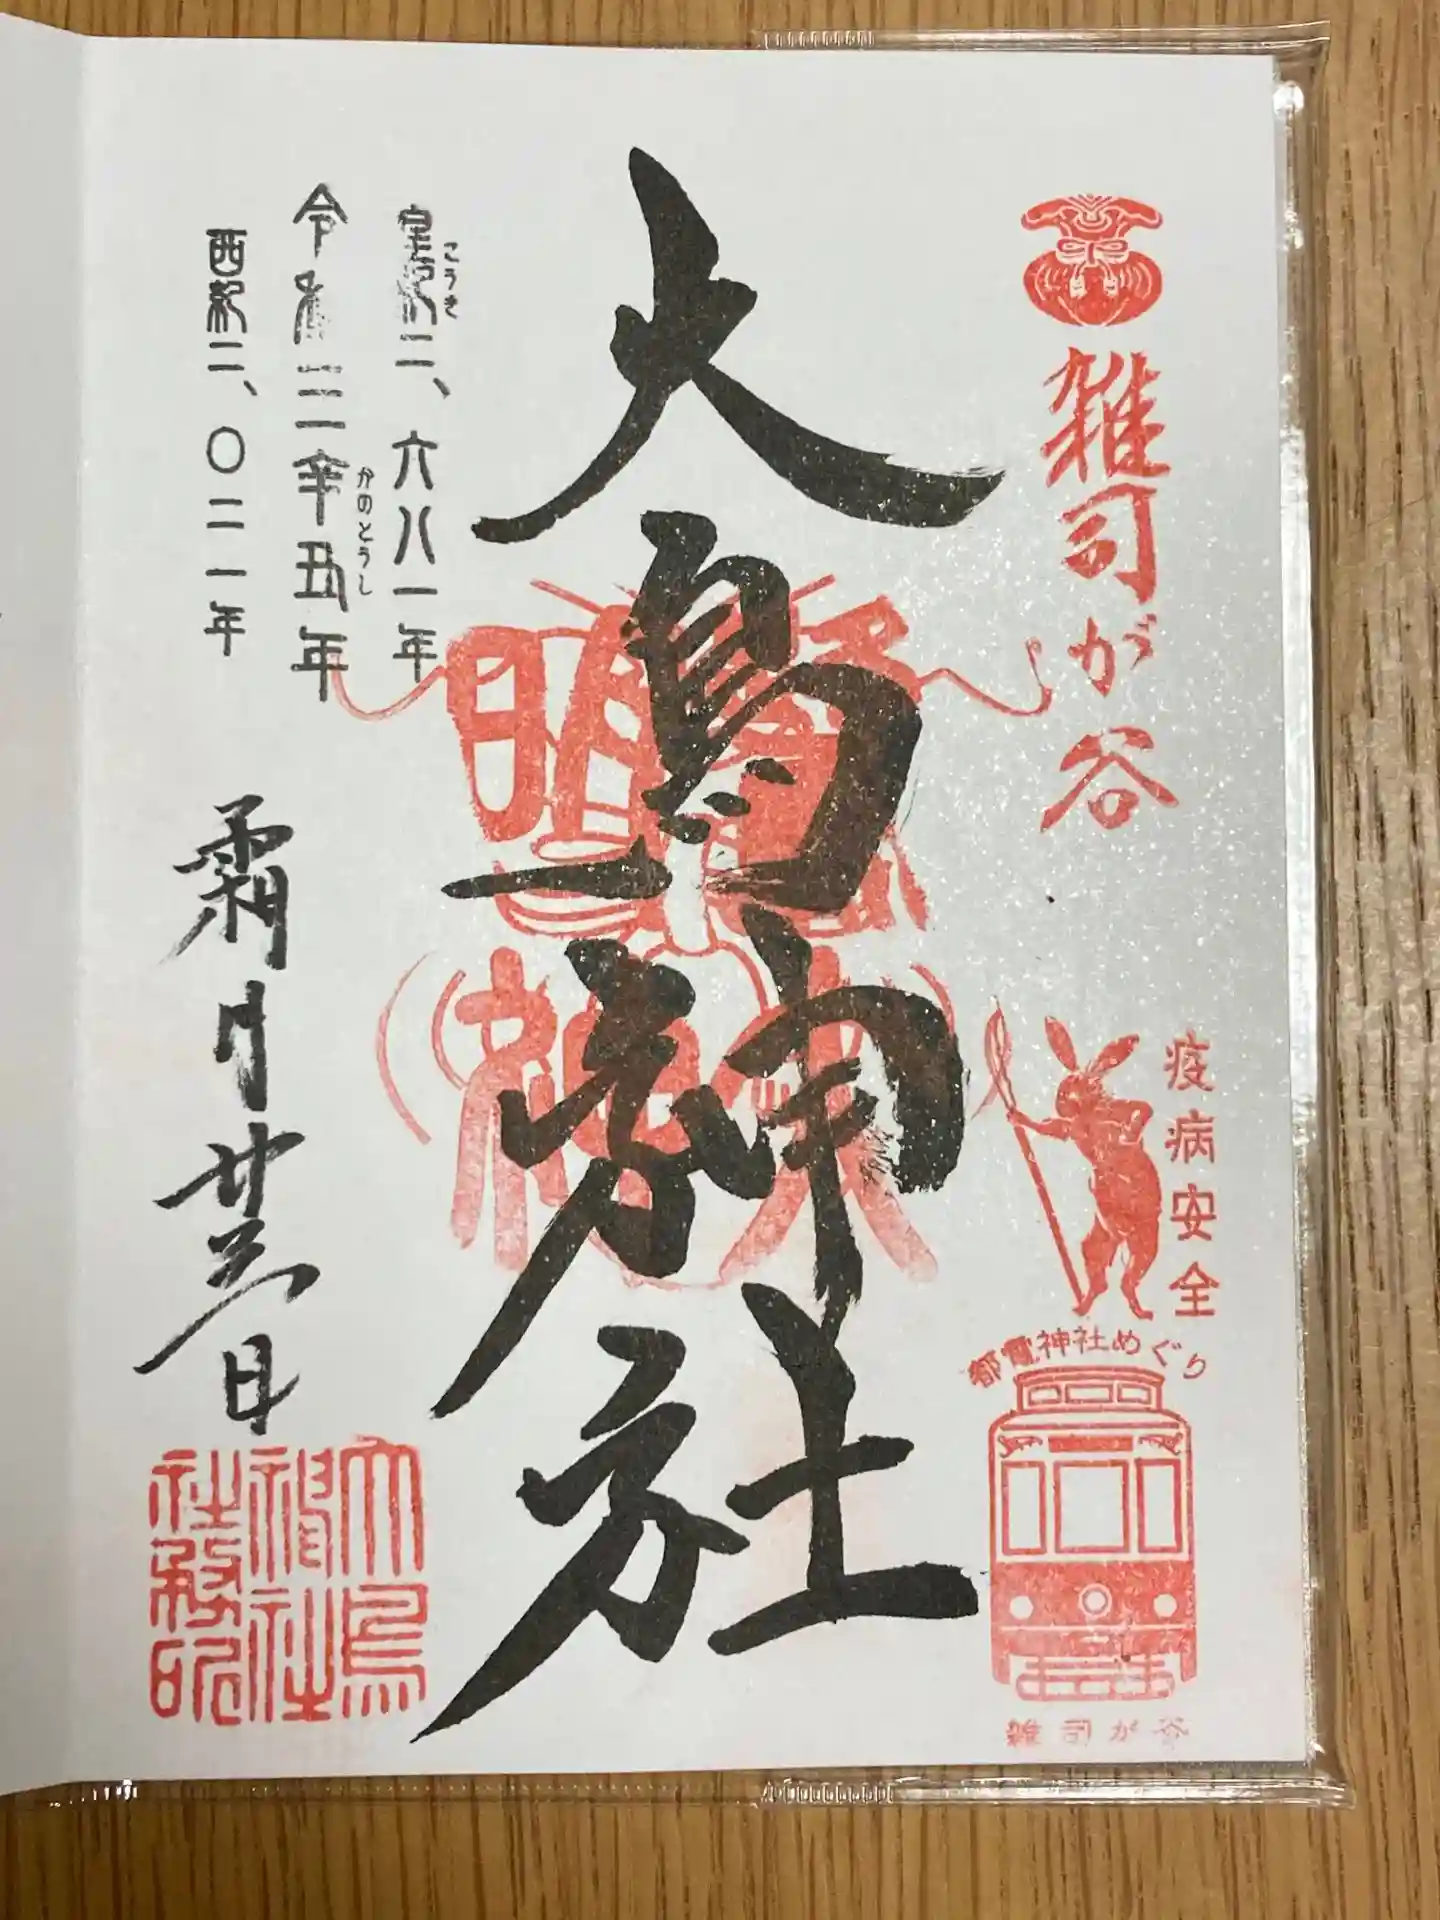 雑司が谷
疫病安全
都電神社めぐり
雑司が谷
大鳥神社
こうき
皇紀二、六八一年
かのとうし
令和三辛丑年
西紀二、〇二一年
霜月廿三日
大鳥
神社
社務所